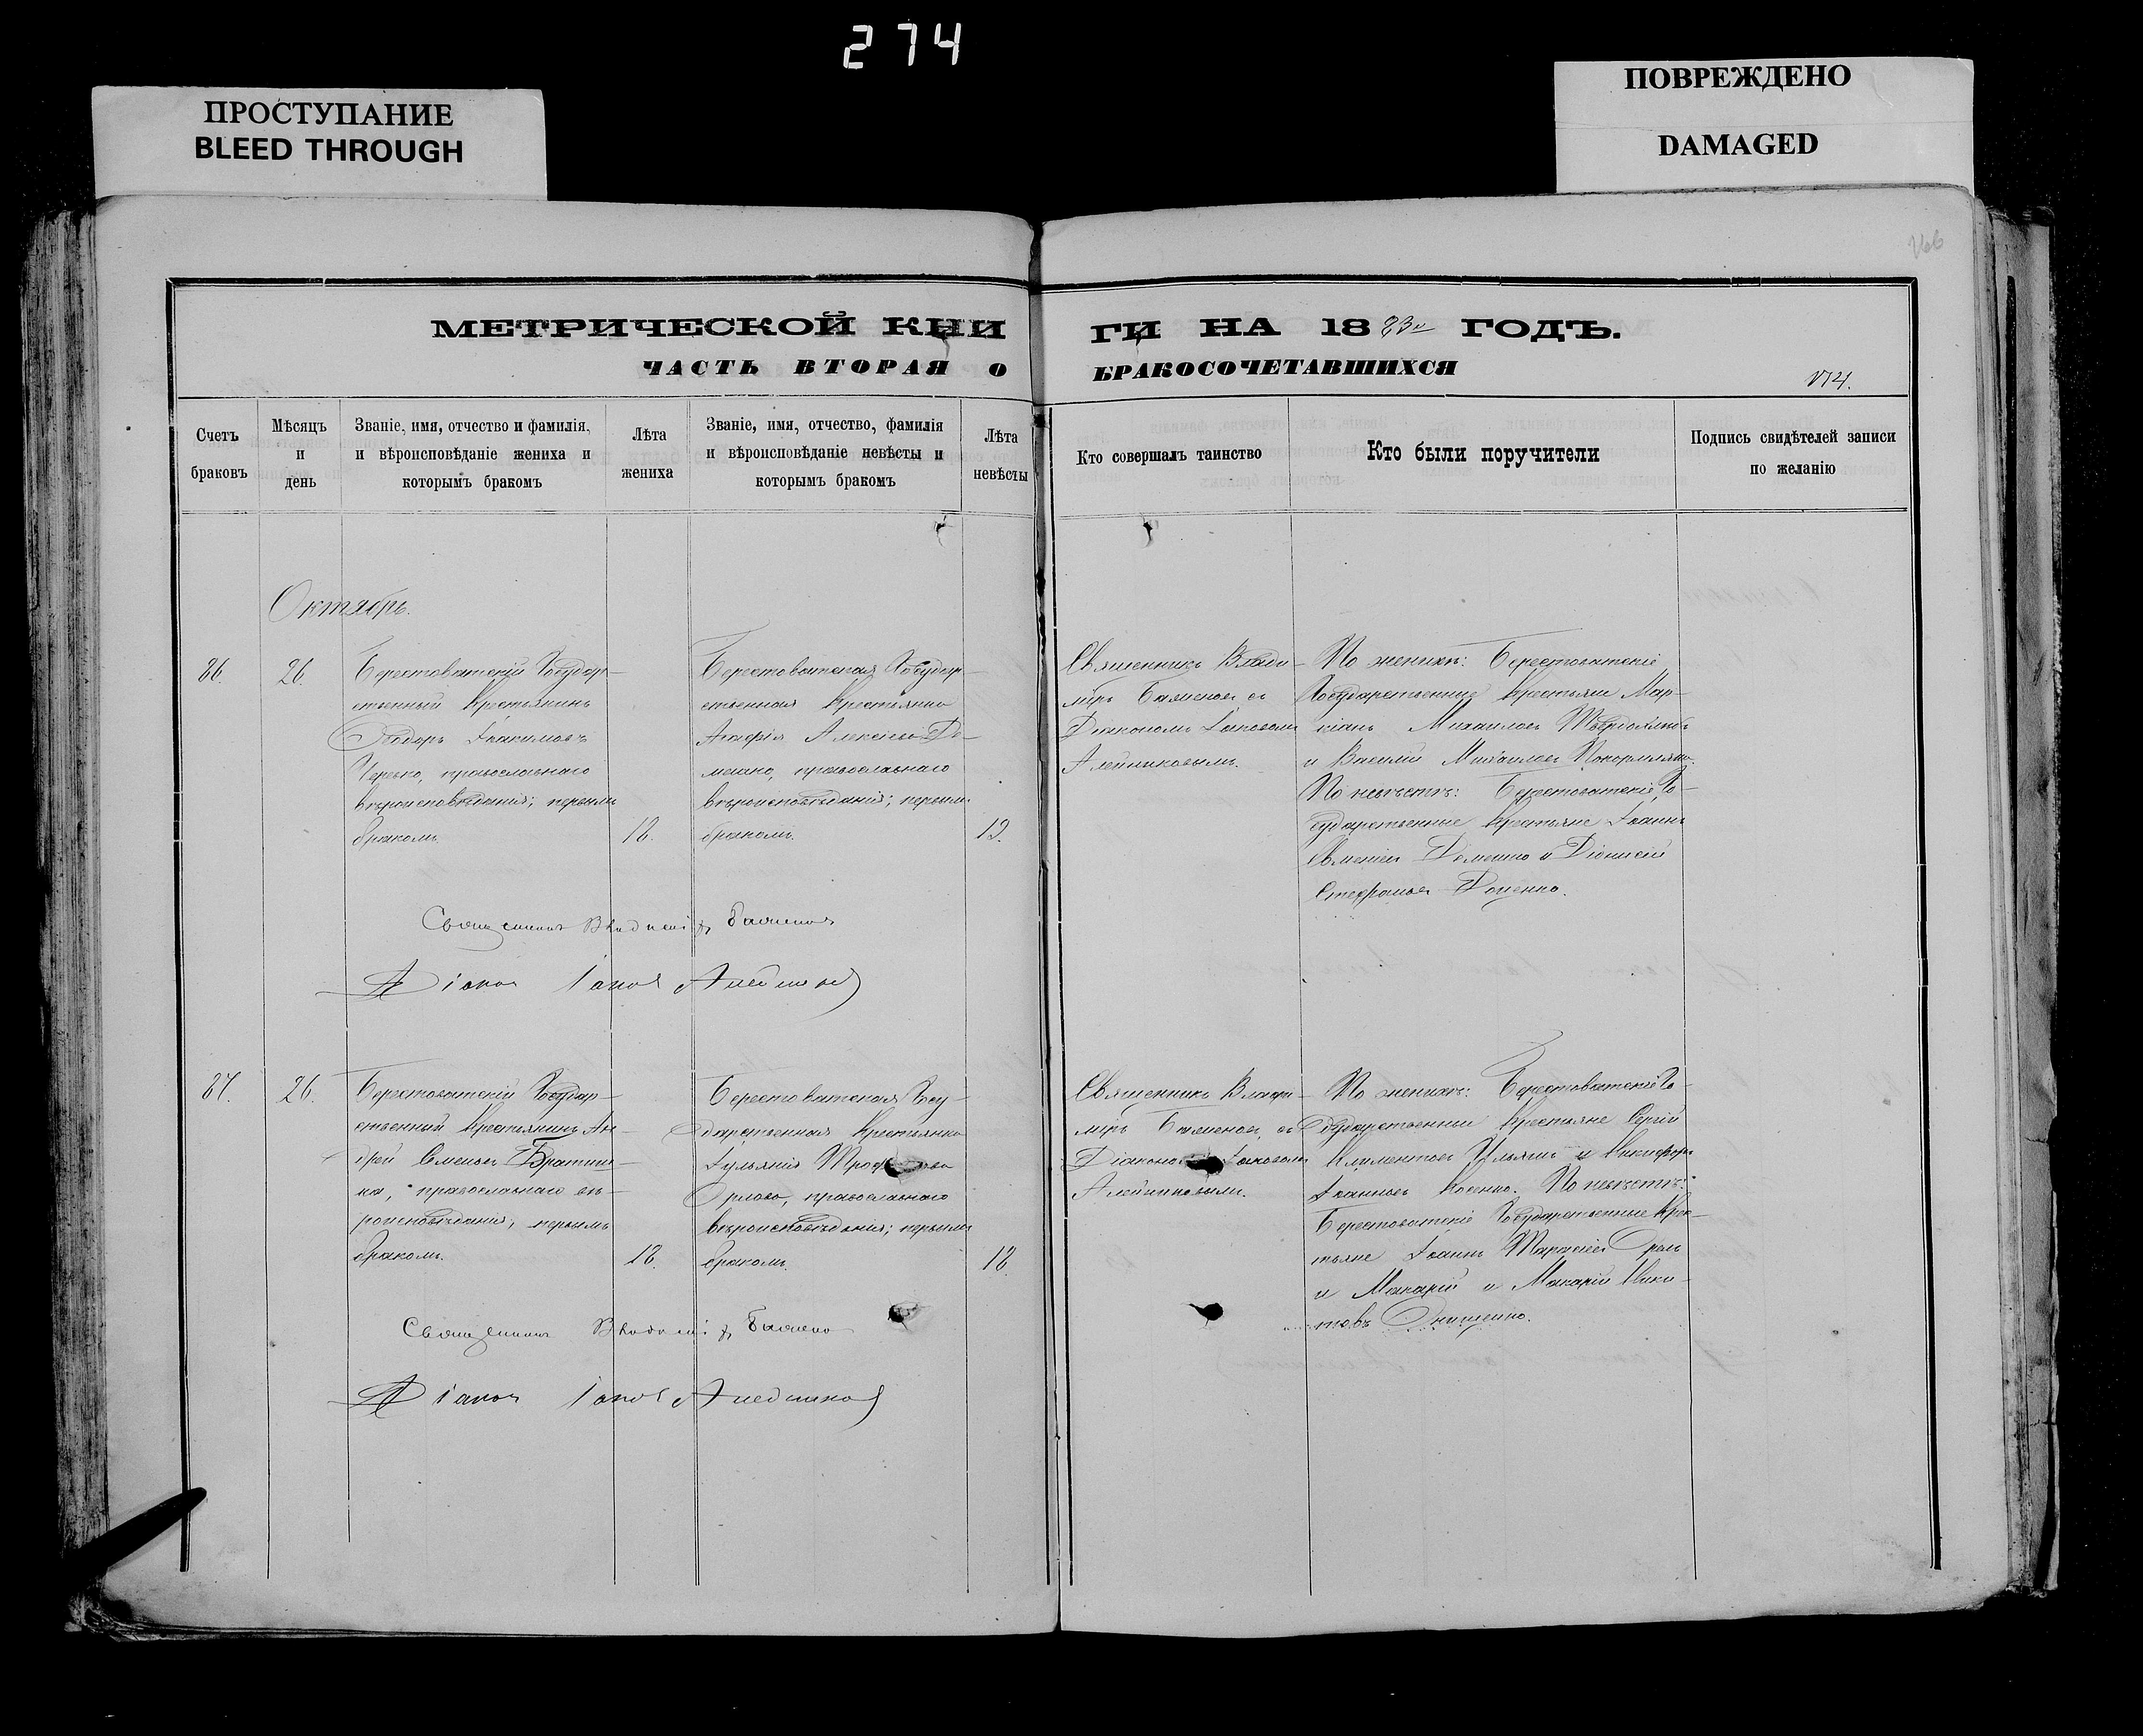 274
ПРОСТУПАНИЕ
BLEED THROUGH
ПОВРЕЖДЕНО
DAMAGED
МЕТРИЧЕСКОЙ КНИ
ГИ НА 1883 ГОДЪ.
ЧАСТЬ ВТОРАЯ О
БРАКОСОЧЕТАВШИХСЯ
174.
Счетъ
браковъ
Мѣсяцъ
и
день
Званіе, имя, отчество и фамилія,
и вѣроисповѣданіе жениха и
которымъ бракомъ
Лѣта
жениха
Званіе, имя, отчество, фамилія
и вѣроисповѣданіе невѣсты и
которымъ бракомъ
Лѣта
невѣсты
Кто совершалъ таинство
Кто были поручители
Подпись свидѣтелей записи
по желанію
Октябрь.
86.
26.
Берестоватскій Государ-
ственный Крестьянинъ
Ѳеодоръ Іоакимовъ
Черько, православнаго
вѣроисповѣданія; первымъ
бракомъ.
18.
Берестоватская Государ-
ственная Крестьянка
Агафія Алексіева
православнаго
вѣроисповѣданія; первымъ
бракомъ.
19.
Священникъ Влади-
міръ Баженовъ съ
Діакономъ Іаковомъ
Алейниковымъ.
По женихѣ: Берестоватскіе
Государственные Крестьяне Мар-
кіанъ Михаиловъ
и Василій Михаиловъ
По невѣстѣ: Берестоватскіе Го-
сударственные Крестьяне Іоаннъ
и Діонисій
Стефановъ Доценко.
Священникъ Владиміръ Баженовъ
Діаконъ Іаковъ Алейниковъ
87.
26.
Берестоватскій Государ-
ственный Крестьянинъ Ан-
дрей Семеновъ Братиш-
ка, православнаго вѣ-
роисповѣданія, первымъ
бракомъ.
18.
Берестоватская Госу-
дарственная Крестьянка
Іуліанія
Орлова, православнаго
вѣроисповѣданія; первымъ
бракомъ.
18.
Священникъ Влади-
міръ Баженовъ, съ
Іаковомъ
Алейниковымъ.
По женихѣ: Берестоватскіе Го-
сударственные Крестьяне Сергій
Климентовъ Ильяшъ и Никифоръ
Іоанновъ Косенко. По невѣстѣ:
Берестоватскіе Государственные Крес-
тьяне Іоаннъ Тарасіевъ Орелъ
и Макарій и Макарій Ники-
товъ Онищенко.
Священникъ Владиміръ Баженовъ
Діаконъ Іаковъ Алейниковъ